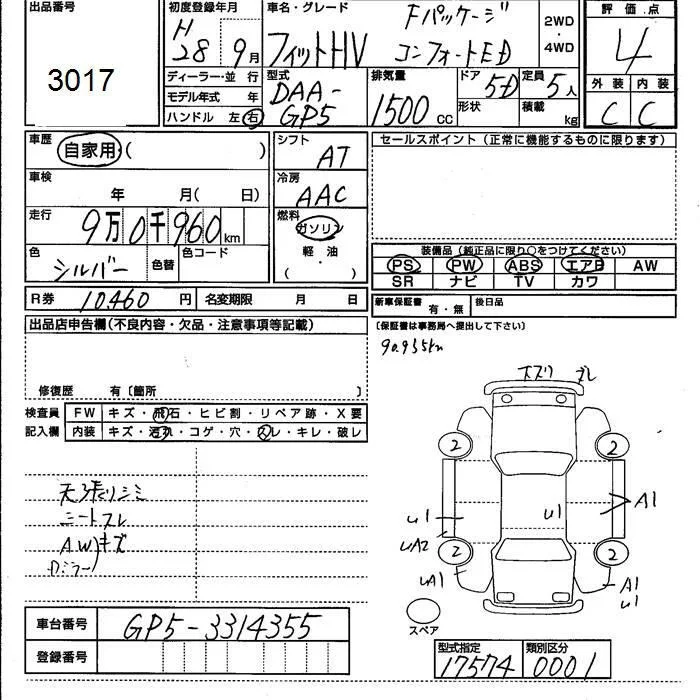 出品番号
3017
初度登録年月
H
28 9月
車名・グレード
Fパッケージ
フィットHV コンフォートED
2WD
・
4WD
評価点
4
ディーラー・並 行
モデル年式 年
ハンドル 左 右
型式
DAA-
GP5
排気量
1500 cc
ドア 5D
形状
定員 5人
積載 kg
外装 内装
C C
車歴
自家用 ( )
シフト
AT
セールスポイント (正常に機能するものに限ります)
車検
年 月( 日)
冷房
AAC
走行
9万0千960km
燃料
ガソリン
軽・油
( )
色
シルバー
色替
色コード
装備品 (純正品に限り○をつけてください)
PS PW ABS エアB AW
SR ナビ TV カワ
R券 10460 円 名変期限 月 日
新車保証書 有・無 後日品
(保証書は事務局へ提出して下さい)
出品店申告欄(不良内容・欠品・注意事項等記載)
90.955km
修復歴 有〔箇所 〕
検査員
記入欄
FW キズ・飛石・ヒビ割・リペア跡・X要
内装 キズ・汚れ・コゲ・穴・スレ・キレ・破レ
天張りシミ
シートスレ
AWキズ
ズレ
2 2
A1
U1 U1
UA2
2 2
UA1 A1
U1
スペア
車台番号 GP5-3314355
登録番号
型式指定 類別区分
17574 0001